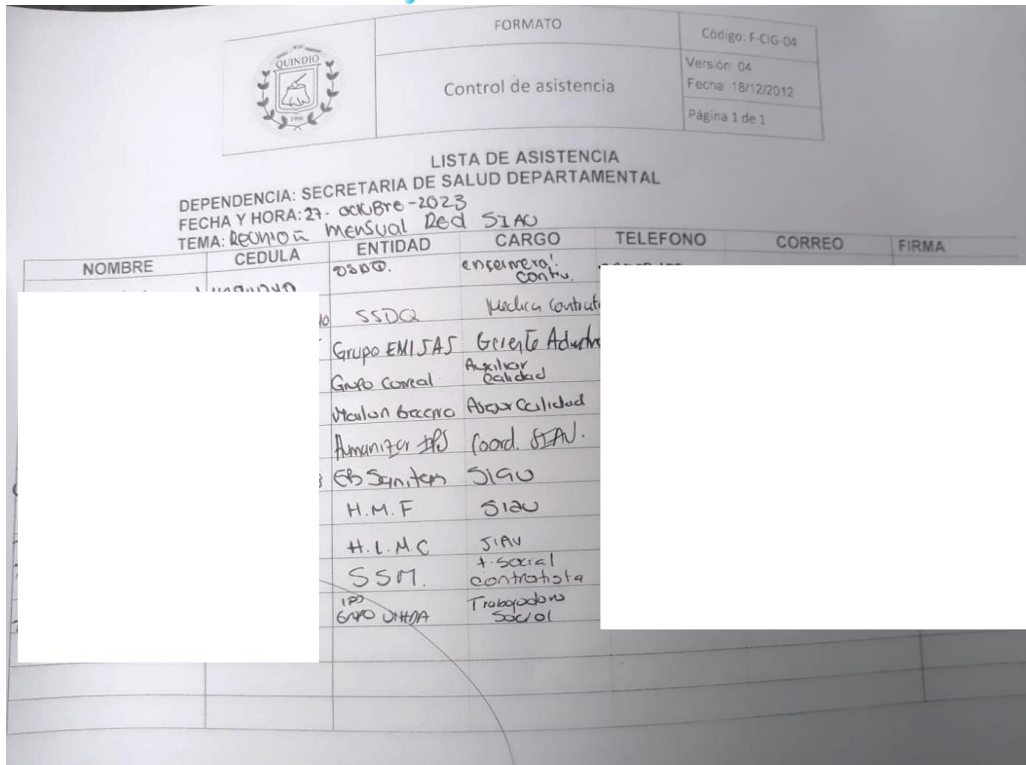 QUINDIO
FORMATO
Control de asistencia
Código: F-CIG-04
Versión: 04
Fecha: 18/12/2012
Página 1 de 1
LISTA DE ASISTENCIA
DEPENDENCIA: SECRETARIA DE SALUD DEPARTAMENTAL
FECHA Y HORA: 27- octubre -2023
TEMA: Reunion mensual Red SIAU
NOMBRE CEDULA ENTIDAD CARGO TELEFONO CORREO FIRMA
enfermera
Contiv.
SSDQ Medica Contrat
Grupo EMI SAS Gerente
Grupo Correal Auxiliar
Calidad
Calidad
Humanizar IPS Coord. SIAU.
EPS Sanitas SIAU
H.M.F Siau
H.L.M.C SIAU
SSM. t. Social
contratista
IPS Trabajadora
Grupo Social